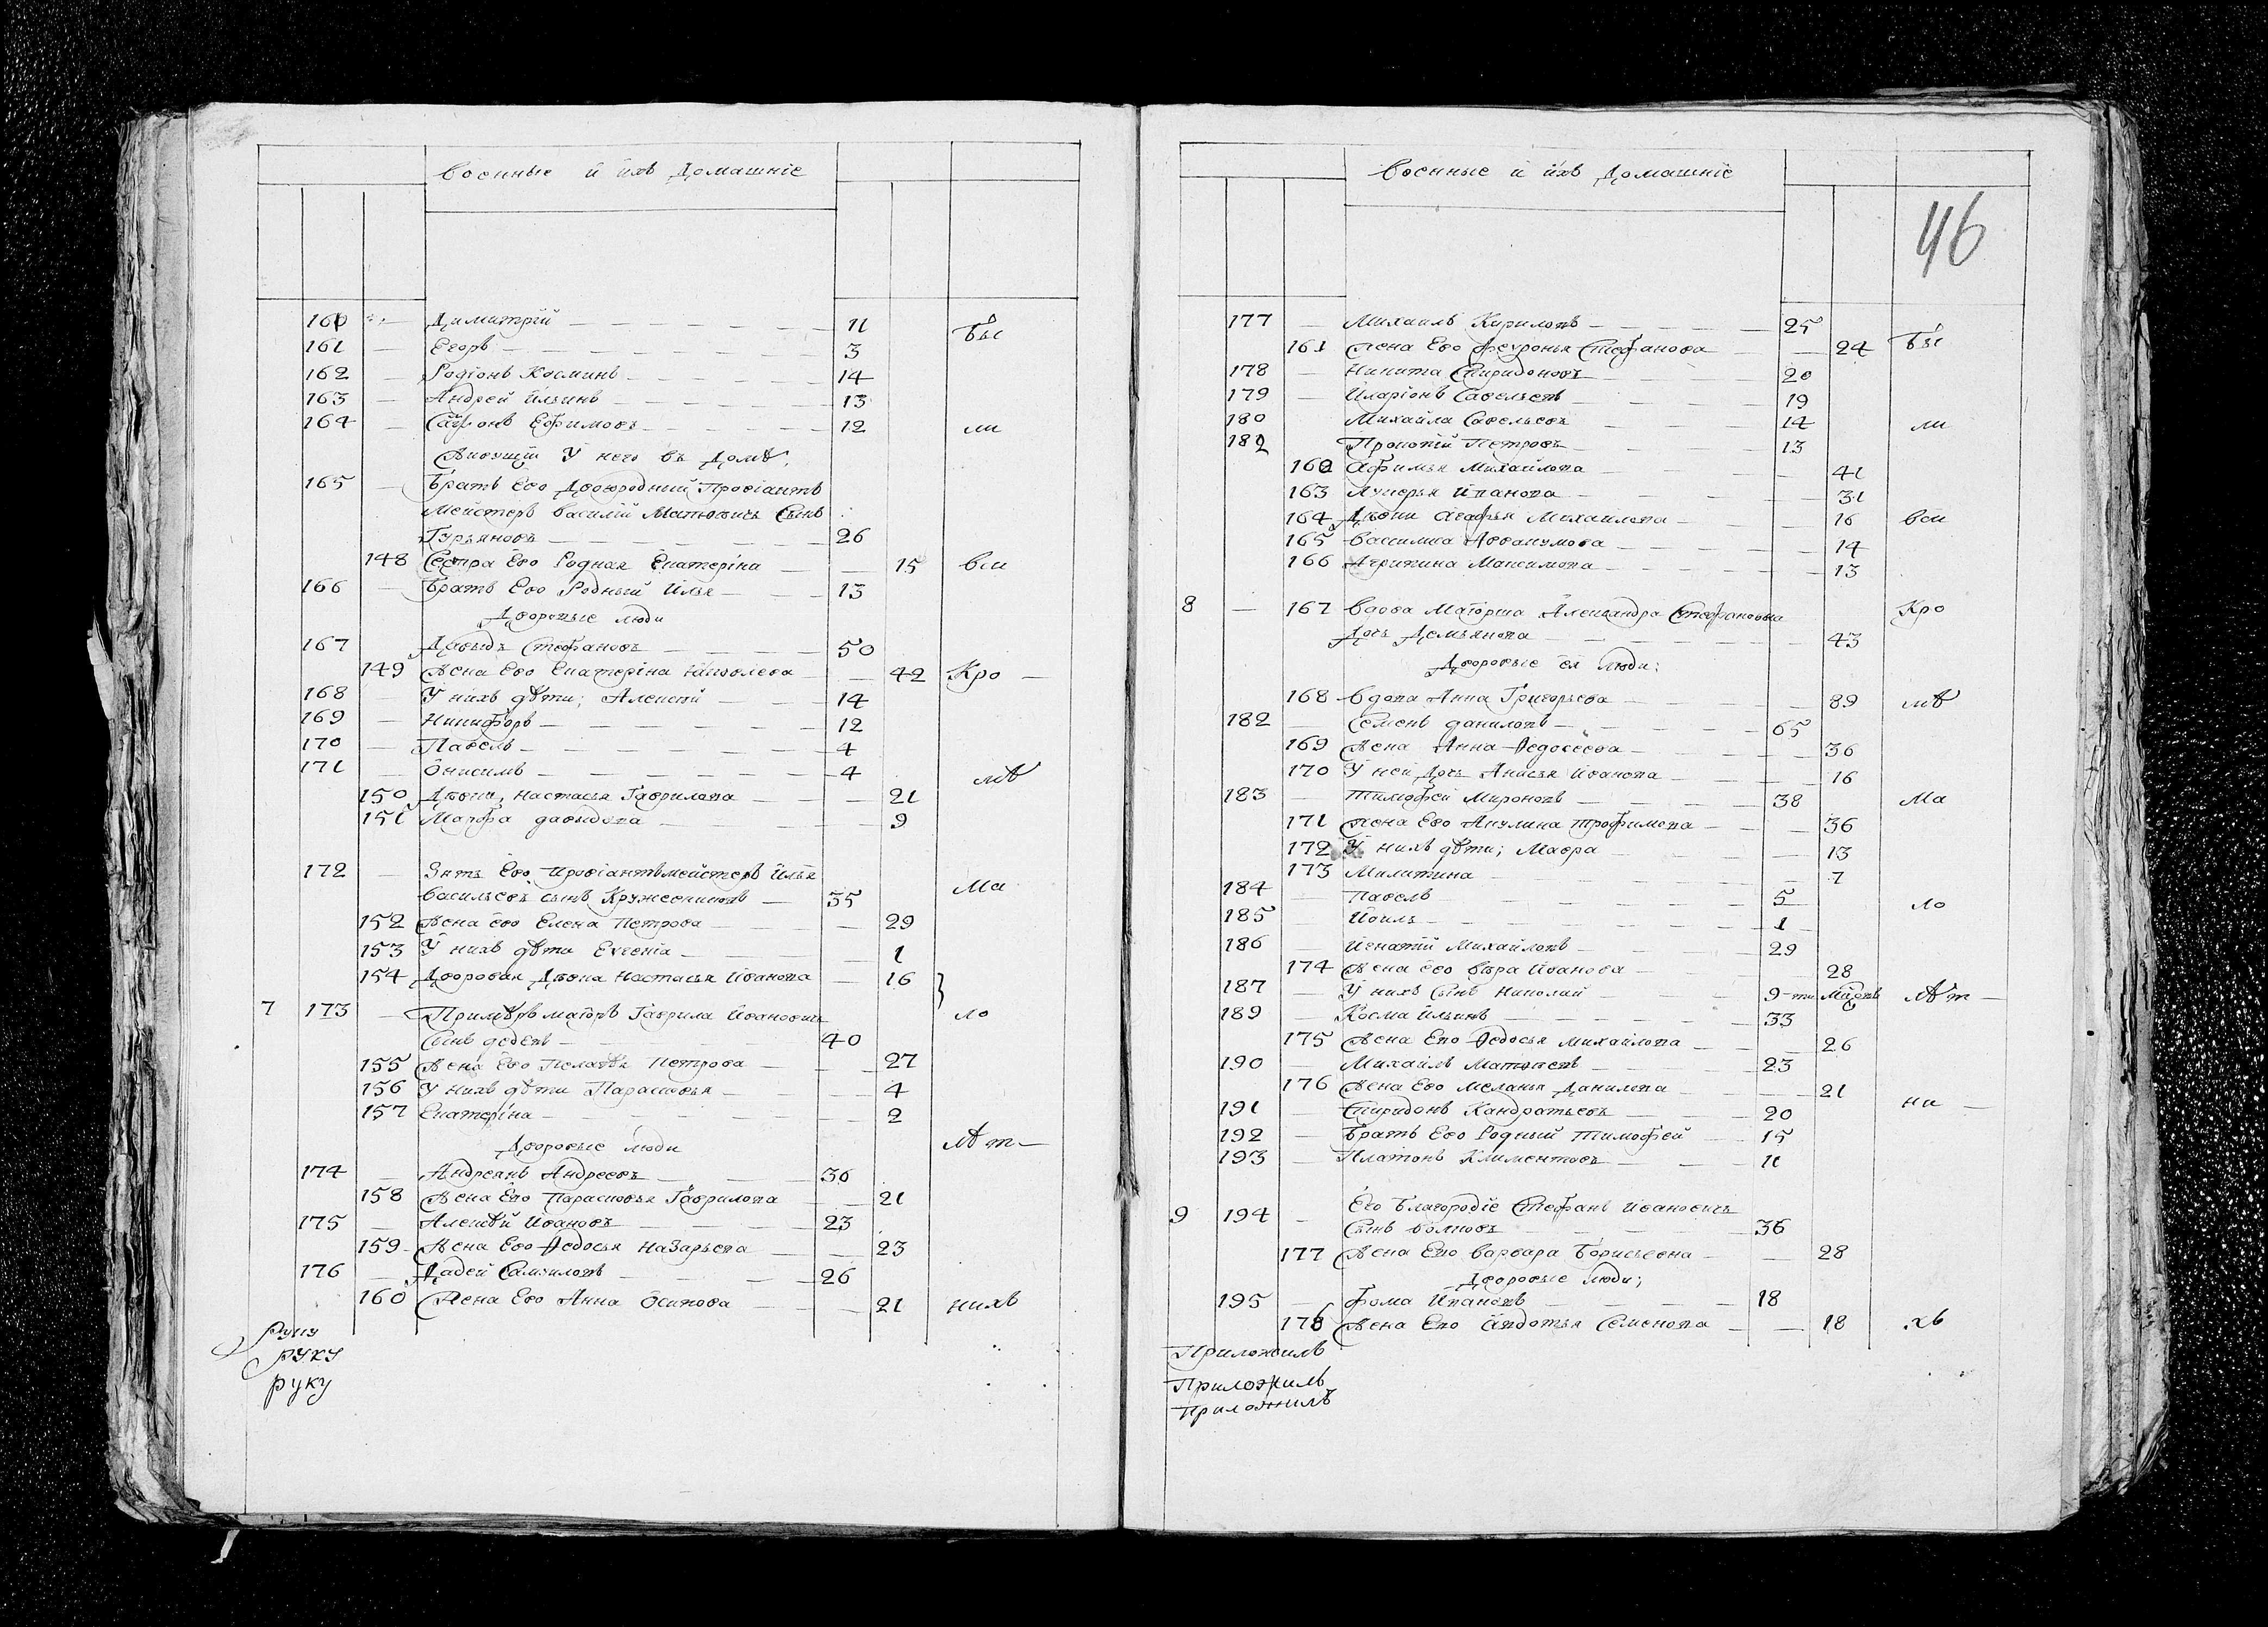 военные и ихъ Домашніе
160 Димитрій 11 бы
161 Егоръ 3
162 Родіонъ Косминъ 14
163 Андрей Ильинъ 13
164 Сафронъ Ефимовъ 12 ли
Живущіи у него въ Домѣ,
165 Братъ Его Двоюродный Провіантъ
Мейстеръ Василій Матвѣевичъ Сынъ
Гурьяновъ 26
148 Сестра Его Родная Екатеріна 15 вси
166 Братъ Его Родный Илья 13
Дворовые люди
167 Давыдъ Стефановъ 50
149 Жена Его Екатеріна 42 Кро
168 У нихъ дѣти; Алексей 14
169 Никифоръ 12
170 Павелъ 4
171 Онисимъ 4 мѣ
150 Дѣвки, Настасья Гаврилова 21
151 Марфа давыдова 9
172 Зять Его Провіантъмейстеръ Илья
Васильевъ сынъ Кружевниковъ 35 Ма
152 Жена его Елена Петрова 29
153 У нихъ дѣти Евгенія 1
154 Дворовая Дѣвка Настасья Иванова 16
7 173 Примѣръ маіоръ Гаврила Ивановичъ ло
Сынъ дедевъ 40
155 Жена Его Пелагѣя Петрова 27
156 У нихъ дѣти Парасковья 4
157 Екатеріна 2
Дворовые люди лѣт
174 Андреянъ Андреевъ 30
158 Жена Его Парасковья Гаврилова 21
175 Алексѣй Ивановъ 23
159 Жена Его Ѳедосья Назарьева 23
176 Фадей Самуиловъ 26
160 Жена Его Анна Осипова 21 нихъ
руку
руку
руку
военные и ихъ Домашніе
46
177 Михаилъ Кириловъ 25
161 Жена Его Февронья Стефанова 24 бы
178 Никита Спиридоновъ 20
179 Иларіонъ Савельевъ 19
180 Михайла Савельевъ 14 ли
182 Прокопій Петровъ 13
162 Афимья Михайлова 41
163 Лукерья Иванова 31
164 Дѣвки Агафья Михайлова 16 вси
165 Василиса Аввакумова 14
166 Агрипина Максимова 13
8 167 Вдова Маіорша Александра Стефановна Кро
Дочь Демьянова 43
Дворовые ея люди;
168 Вдова Анна Григорьева 89 мѣ
182 Семенъ даниловъ 65
169 Жена Анна Ѳедосеева 36
170 У ней Дочь Анисья Иванова 16
183 Тимофей Мироновъ 38 Ма
171 Жена Его Акулина Трофимова 36
172 У нихъ дѣти; Мавра 13
173 Милитина 7
184 Павелъ 5 ло
185 Иоиль 1
186 Игнатій Михайловъ 29
174 Жена его Вѣра Иванова 28
187 У нихъ Сынъ Николай 9-ти Мцовъ лѣт
189 Косма Ильинъ 33
175 Жена Его Ѳедосья Михайлова 26
190 Михаилъ Матвѣевъ 23
176 Жена Его Меланья Данилова 21
191 Спиридонъ Кандратьевъ 20 ни
192 Братъ Его Родный Тимофей 15
193 Платонъ Климентовъ 11
9 194 Его Благородіе Стефанъ Ивановичъ
Сынъ волковъ 36
177 Жена Его Варвара Борисьевна 28
Дворовые люди;
195 Фома Ивановъ 18
178 Жена Его Авдотья Семенова 18 хъ
Приложилъ
Приложилъ
Приложилъ